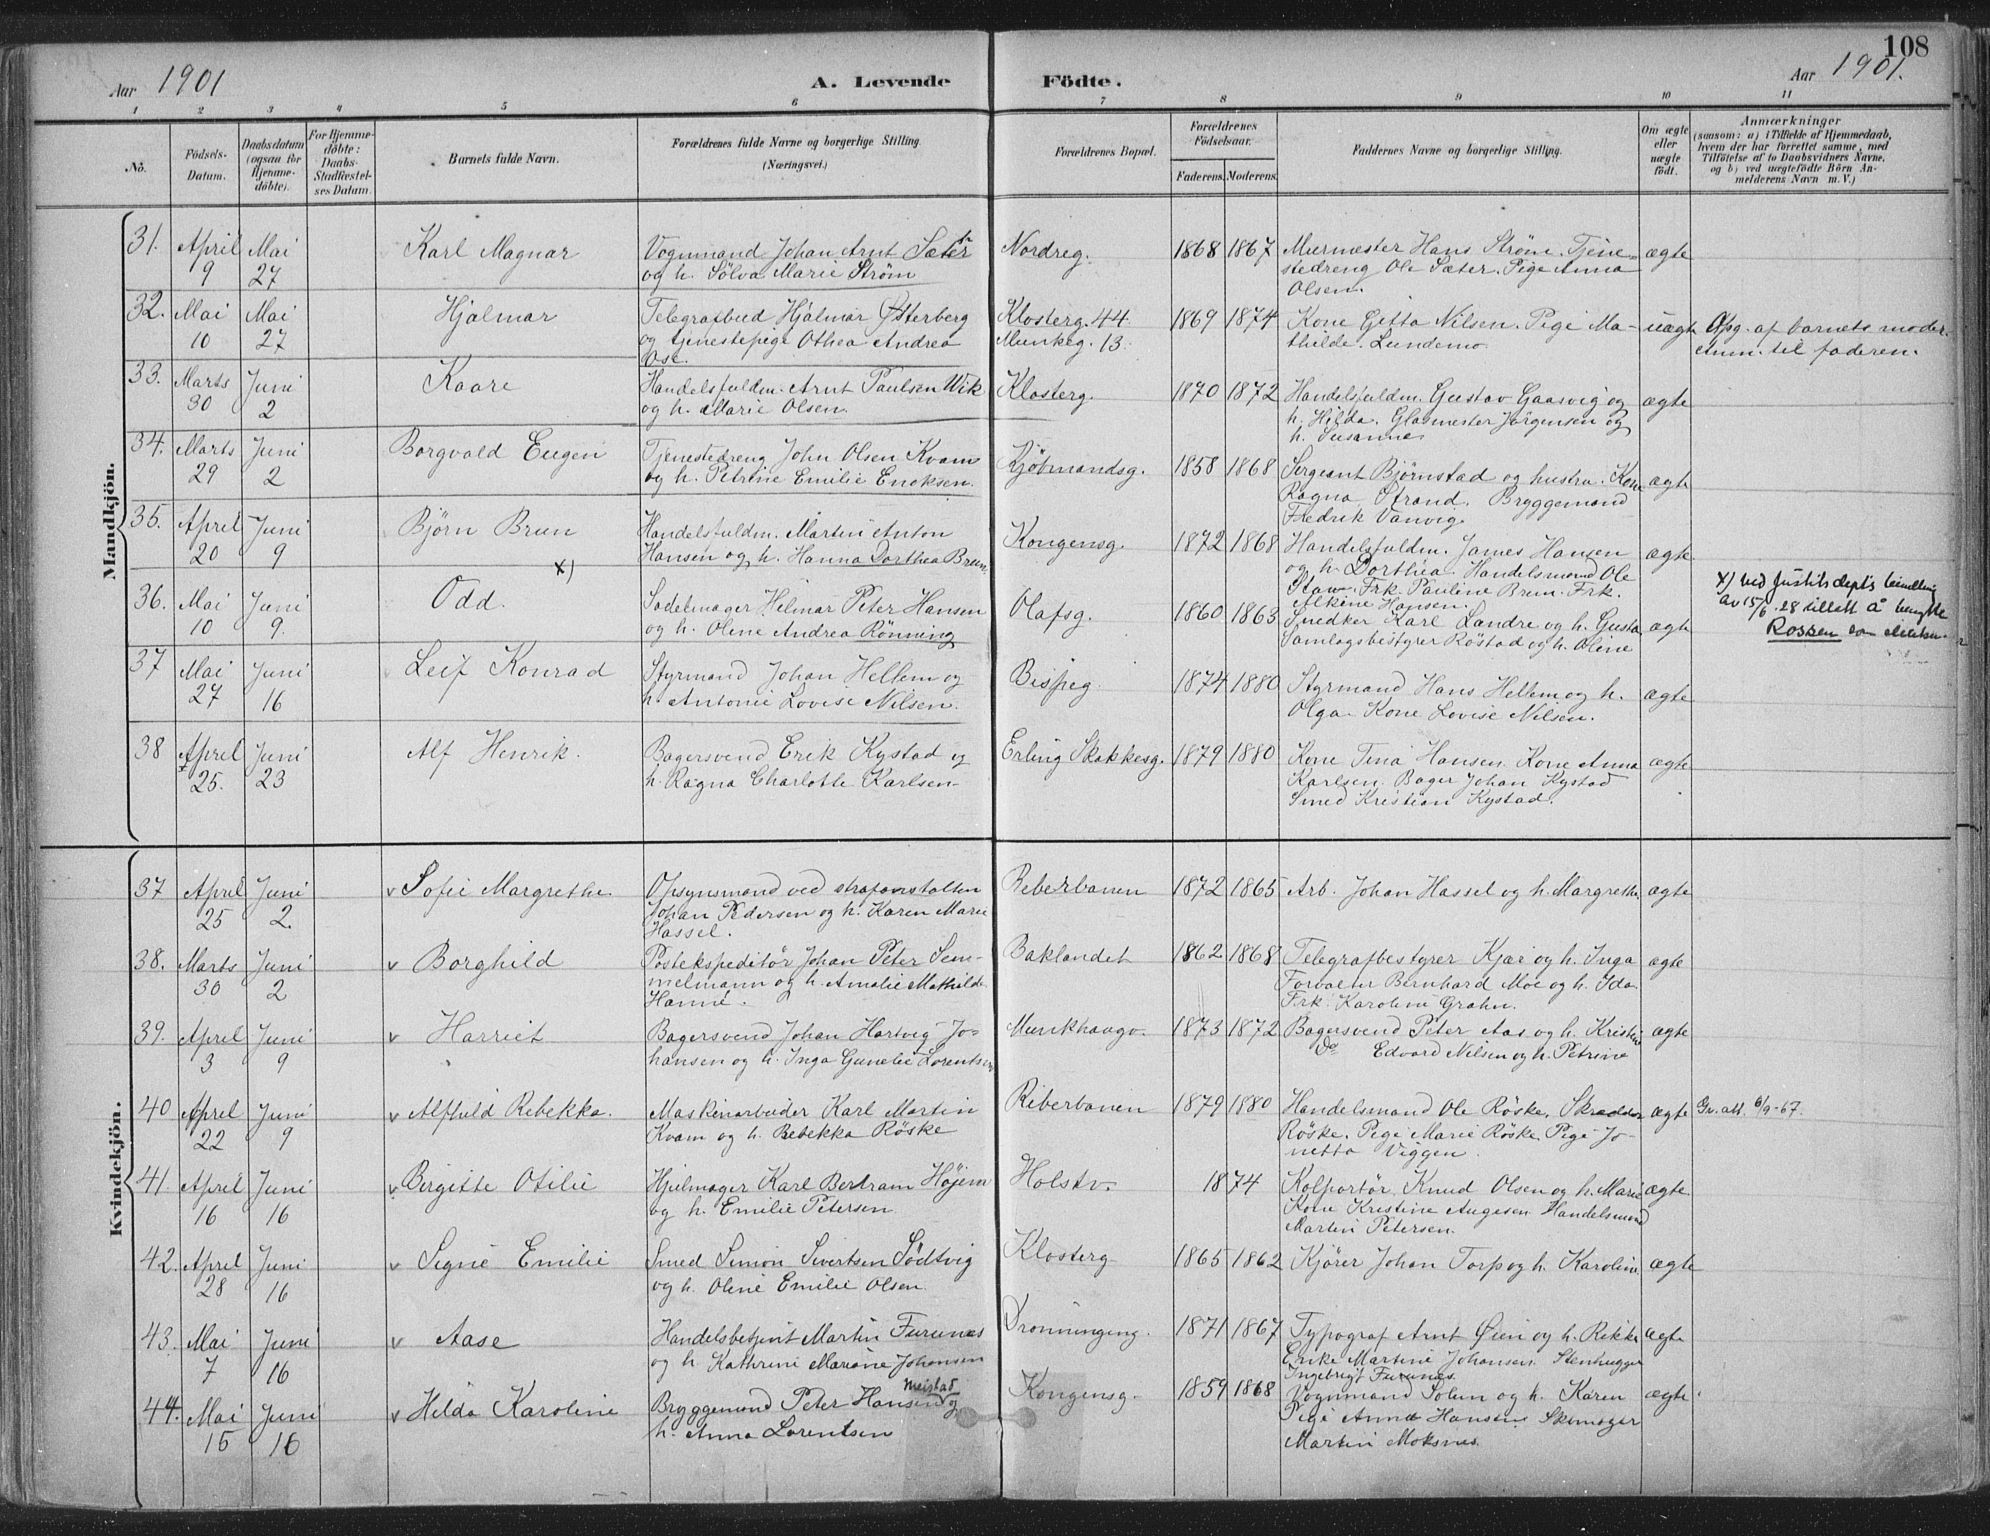 108
Aar 1901 A. Levende Födte. Aar 1901.
1 2 3 4 5 6 7 8 9 10 11
No. Födsels-Datum. Daabsdatum (ogsaa for Hjemmedöbte). For Hjemmedöbte: Daabs-Stadfæstelses Datum. Barnets fulde Navn. Forældrenes fulde Navne og borgerlige Stilling (Næringsvei.) Forældrenes Bopæl. Forældrenes Födselsaar. Faderens. Moderens. Faddernes Navne og borgerlige Stilling. Om ægte eller uægte födt. Anmærkninger (saasom: a) i Tilfælde af Hjemmedaab, hvem der har forrettet samme, med Tilföielse af to Daabsvidners Navne, og b) ved uægtefödte Börn Anmelderens Navn m. V.)
Mandkjön.
31. April 9 Mai 27 Karl Magnar Vognmand Johan Arnt Sæter
og h. Sölva Marie Strøm Nordreg. 1868 1867 Murmester Hans Strøm. Tjene-
stedreng Ole Sæter. Pige Anna
Olsen. ægte
32. Mai 10 Mai 27 Hjalmar Telegrafbud Hjalmar Østerberg
og tjenestepige Othea Andrea
Ose. Klosterg. 44.
Munkeg. 13. 1869 1874 Kone Gitta Nilsen. Pige Ma-
thilde Lundemo uægte Opg. af barnets moder.
Anm. til faderen.
33. Marts 30 Juni 2 Kaare Handelsfuldm. Arnt Paulsen Wik
og h. Marie Olsen. Klosterg. 1870 1872 Handelsfuldm. Gustav Gaasvig og
h. Hilda. Glasmester Jørgensen og
h. Susanne ægte
34. Marts 29 Juni 2 Borgvald Eugen Tjenestedreng John Olsen Kvam
og h. Petrine Emilie Enoksen. Kjöbmandsg. 1858 1868 Sergeant Bjørnstad og hustru. Kone
Ragna Strand. Bryggemand
Fredrik Vanvig. ægte
35. April 20 Juni 9 Björn Brun Handelsfuldm. Martin Anton
Hansen og h. Hanna Dorthea Brun. Kongensg. 1872 1868 Handelsfuldm. James Hansen
og h. Dorthea. Handelsmand Ole
Staw. Frk. Pauline Brun. Frk.
Alkine Hansen. ægte
36. Mai 10 Juni 9. Odd. x) Sadelmager Helmar Peter Hansen
og h. Olene Andrea Rönning Olafsg. 1860 1863 Snedker Karl Landre og h. Gusta
Samlagsbestyrer Röstad og h. Oline ægte x) ved Justitsdepts bevilling
av 15/6-28 tillatt å benytte
Rossen som
37 Mai 27 Juni 16 Leif Konrad Styrmand Johan Hellem og
h. Antonie Lovise Nilsen. Bispeg. 1874 1880 Styrmand Hans Hellem og h.
Olga. Kone Lovise Nilsen. ægte
38 April 25. Juni 23 Alf Henrik. Bagersvend Erik Kystad og
h. Ragna Charlotte Karlsen Erling Skakkesg. 1879 1880 Kone Tina Hansen. Kone Anna
Karlsen. Bager Johan Kystad
Smed Kristian Kystad. ægte
Kvindekjön.
37 April 25 Juni 2. v Sofie Margrethe Opsynsmand ved strafanstalten
Johan Pedersen og h. Karen Marie
Hassel. Reberbanen 1872 1865 Arb. Johan Hassel og h. Margrethe ægte
38. Marts 30 Juni 2 v Borghild Postekspeditör Johan Peter Sem-
melmann og h. Amalie Mathilde
Hanne. Baklandet 1862 1868 Telegrafbestyrer Kjær og h. Inga
Forvalter Bernhard Moe og h. Ida.
Frk. Karoline Grahn. ægte
39. April 3 Juni 9 v Harriet Bagersvend Johan Hartvig Jo-
hansen og h. Inga Gunelie Lorentsen Munkhaugv. 1873 1872 Bagersvend Peter Aas og h. Kristine
Do Edvard Nilsen og h. Petrine ægte
40 April 22 Juni 9 v Alfhild Rebekka. Maskinarbeider Karl Martin
Kvam og h. Bebekka Röske Reberbanen 1879 1880 Handelsmand Ole Röske. Skrædder
Röske. Pige Marie Röske. Pige Jo-
netta Viggen. ægte Gv. att. 6/9-67.
41. April 16 Juni 16 v Birgitte Otilie Hjulmager Karl Bertram Höjem
og h. Emilie Petersen Holstv. 1874 Kolportör Knud Olsen og h. Marie
Kone Kristine Augesen Handelsmand
Martin Petersen. ægte
42. April 28 Juni 16 v Signe Emilie Smed Simon Sivertsen Södtvig
og h. Oline Emilie Olsen. Klosterg 1865 1862 Kjörer Johan Torp og h. Karoline. ægte
43. Mai 7 Juni 16 v Aase Handelsbetjent Martin Furunes
og h. Kathrine Mariane Johansen Dronningeng. 1871 1867 Typograf Arnt Øien og h. Rikke
Enke Martine Johansen. Stenhugger
Ingebrigt Furunes ægte
44. Mai 15 Juni 16 v Hilda Karoline Bryggemand Peter Hansen Meistad og
h. Anna Lorentsen Kongensg. 1859 1868 Vognmand Solem og h. Karen
Pige Anna Hansen Skomager
Martin Moksnes. ægte